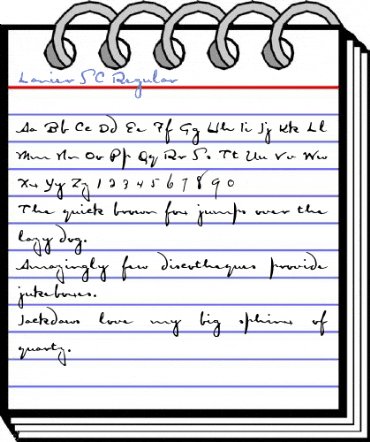 Lanier SC Regular
Aa Bb Cc Dd Ee Ff Gg Hh Ii Jj Kk Ll
Mm Nn Oo Pp Qq Rr Ss Tt Uu Vv Ww
Xx Yy Zz 1 2 3 4 5 6 7 8 9 0
The quick brown fox jumps over the
lazy dog.
Amazingly few discotheques provide
jukeboxes.
Jackdaws love my big sphinx of
quartz.